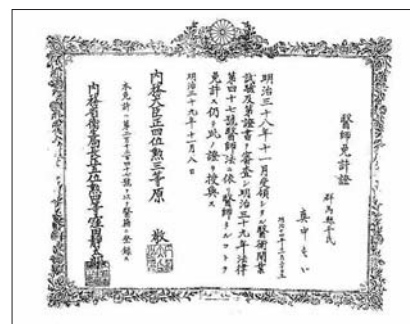 醫師免許證
群馬縣平民
明治三十八年十一月受領シタル醫術開業
試驗及第證書ヲ審査シ明治三十九年法律
第四十七號醫師法ニ依リ醫師タルコトヲ
免許ス仍テ此ノ證ヲ授與ス
明治三十九年十一月八日
內務大臣正四位勲三等原 敬
本免許ハ第二百十三百四十七號ヲ以テ醫籍ニ登録ス
內務省衛生局長正五位勲四等窪田靜太郎